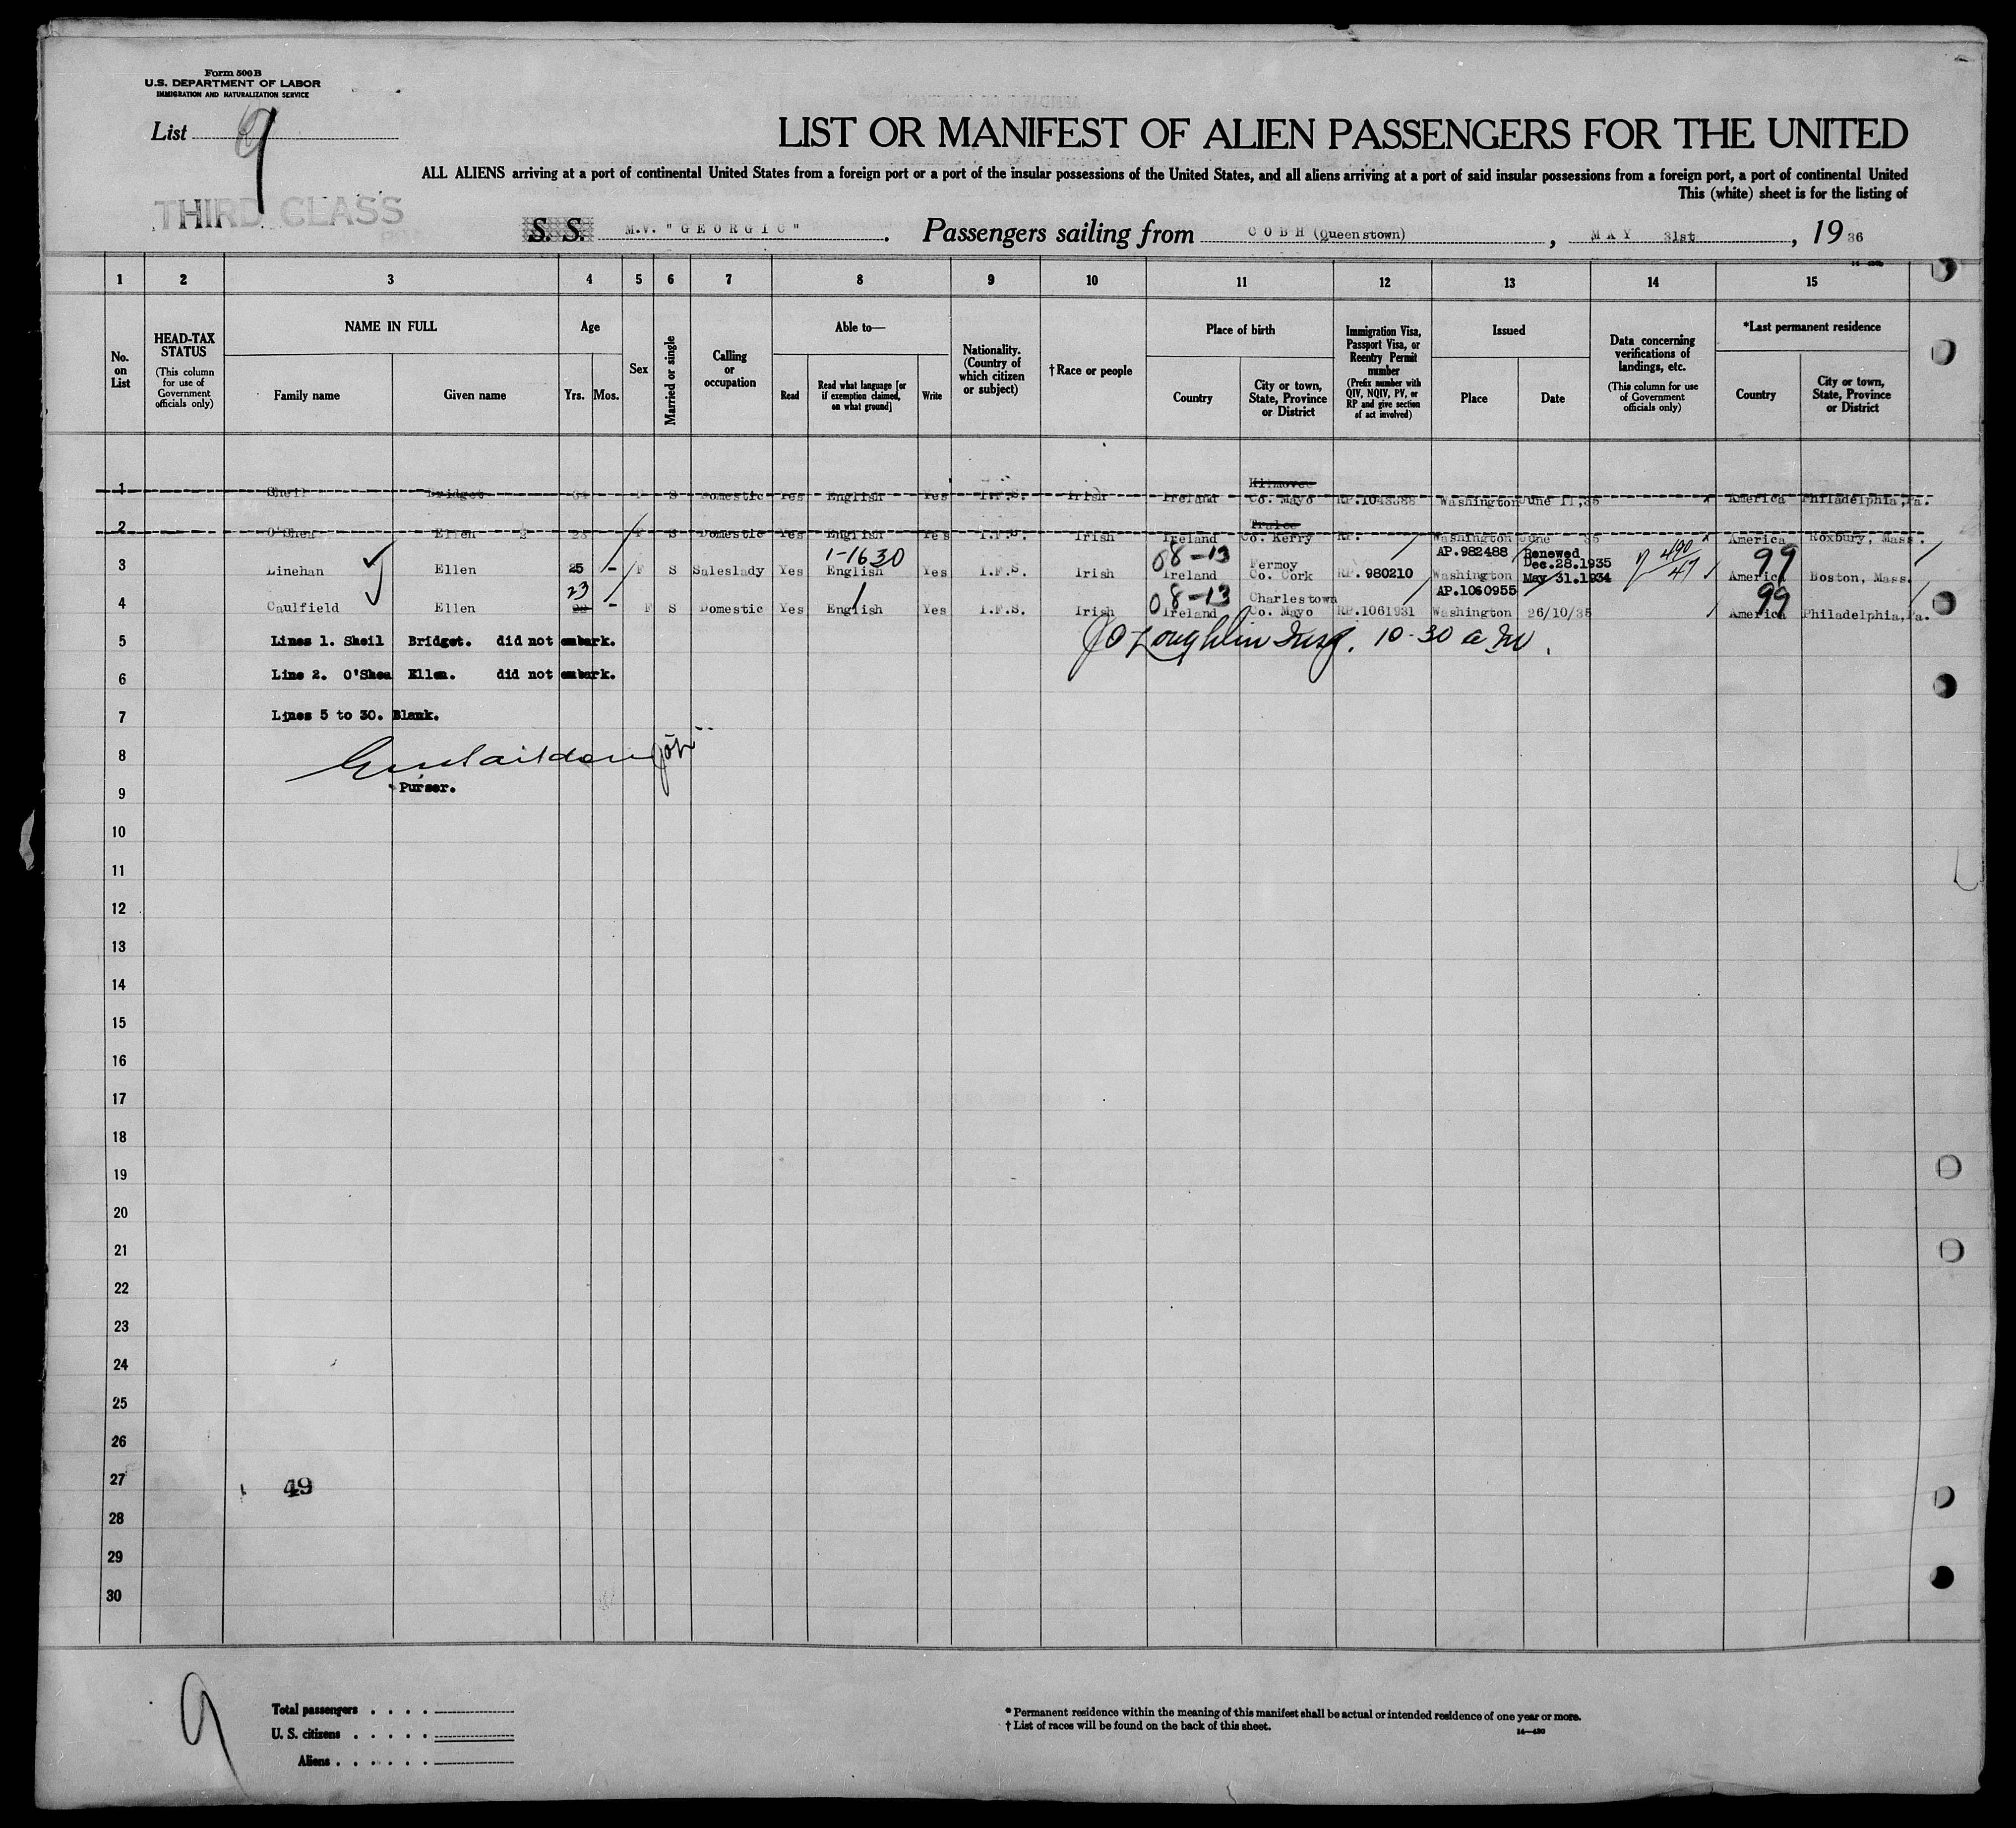 Form 500 B
U.S. DEPARTMENT OF LABOR
IMMIGRATION AND NATURALIZATION SERVICE
List 9
THIRD CLASS
LIST OR MANIFEST OF ALIEN PASSENGERS FOR THE UNITED
ALL ALIENS arriving at a port of continental United States from a foreign port or a port of the insular possessions of the United States, and all aliens arriving at a port of said insular possessions from a foreign port, a port of continental United
This (white) sheet is for the listing of
S. S. M.V. "GEORGIC". Passengers sailing from COBH (Queenstown), MAY 31st, 1936
1 2 3 4 5 6 7 8 9 10 11 12 13 14 15
No. on List
HEAD-TAX STATUS (This column for use of Government officials only)
NAME IN FULL
Family name Given name
Age
Yrs. Mos.
Sex
Married or single
Calling or occupation
Able to—
Read Read what language [or if exemption claimed, on what ground] Write
Nationality. (Country of which citizen or subject)
†Race or people
Place of birth
Country City or town, State, Province or District
Immigration Visa, Passport Visa, or Reentry Permit number (Prefix number with QIV, NQIV, PV, or RP and give section of act involved)
Issued
Place Date
Data concerning verifications of landings, etc. (This column for use of Government officials only)
*Last permanent residence
Country City or town, State, Province or District
1 Sheil Bridget S Domestic Yes English Yes I.F.S. Irish Ireland Co. Mayo RP.1048588 Washington June 11,35 America Philadelphia,Pa.
Tralee
2 O'Shea Ellen 23 F S Domestic Yes English Yes I.F.S. Irish Ireland Co. Kerry RP. Washington June 35 America Roxbury, Mass.
1-1630 08-13 Fermoy AP.982488 Renewed Dec.28.1935 490/47 99
3 Linehan Ellen 25 - F S Saleslady Yes English Yes I.F.S. Irish Ireland Co. Cork RP. 980210 Washington May 31.1934 America Boston, Mass.
23 08-13 Charlestown AP.1060955 99
4 Caulfield Ellen - F S Domestic Yes English Yes I.F.S. Irish Ireland Co. Mayo RP.1061931 Washington 26/10/35 America Philadelphia,Pa.
5 Lines 1. Sheil Bridget. did not embark. 10-30 a.m.
6 Line 2. O'Shea Ellen. did not embark.
7 Lines 5 to 30. Blank.
8
9 Purser.
10
11
12
13
14
15
16
17
18
19
20
21
22
23
24
25
26
27 49
28
29
30
9
Total passengers
U. S. citizens
Aliens
* Permanent residence within the meaning of this manifest shall be actual or intended residence of one year or more.
† List of races will be found on the back of this sheet.
14—430